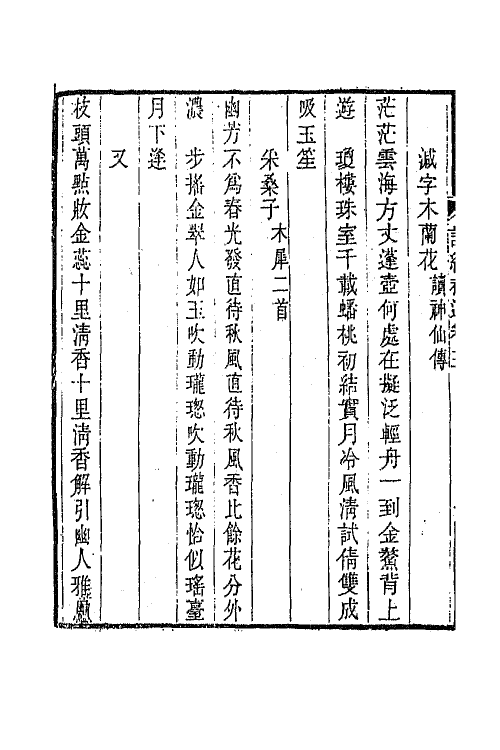 減字木蘭花 讀神仙傳
茫茫雲海方丈蓬壺何處在擬泛輕舟一到金鰲背上
遊　瓊樓珠室千載蟠桃初結實月冷風淸試倩雙成
吸玉笙
采桑子 木犀二首
幽芳不爲春光發直待秋風直待秋風香比餘花分外
濃　步搖金翠人如玉吹動瓏璁吹動瓏璁恰似瑤臺
月下逢
又
枝頭萬點妝金蕊十里淸香十里淸香解引幽人雅興